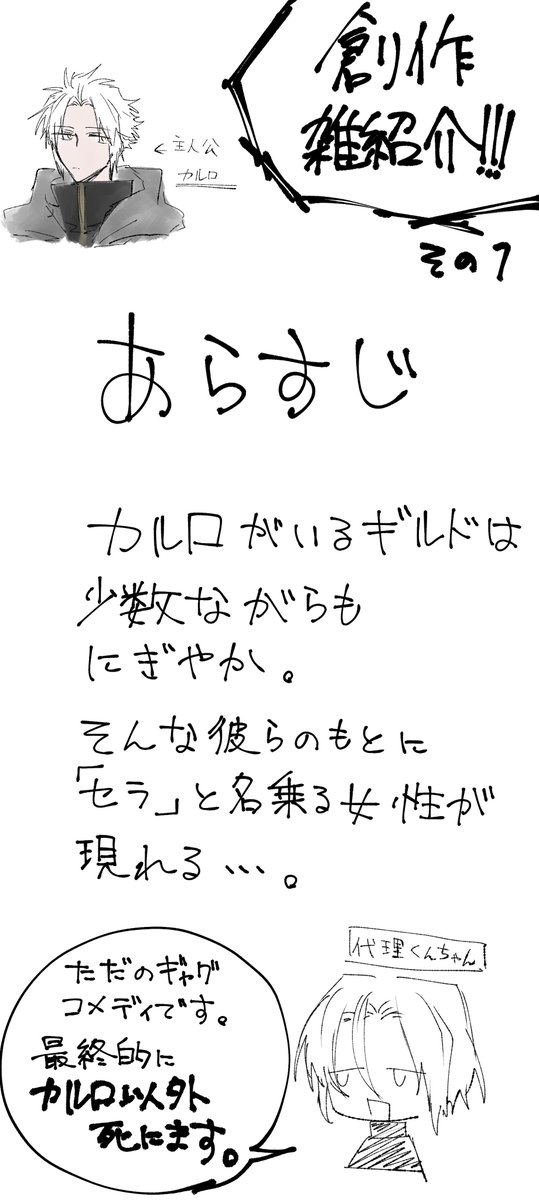 創作
雑紹介!!!
その1
← 主人公
カルロ
あらすじ
カルロがいるギルドは
少数ながらも
にぎやか。
そんな彼らのもとに
「セラ」と名乗る女性が
現れる…。
代理くんちゃん
ただのギャグ
コメディです。
最終的に
カルロ以外
死にます。